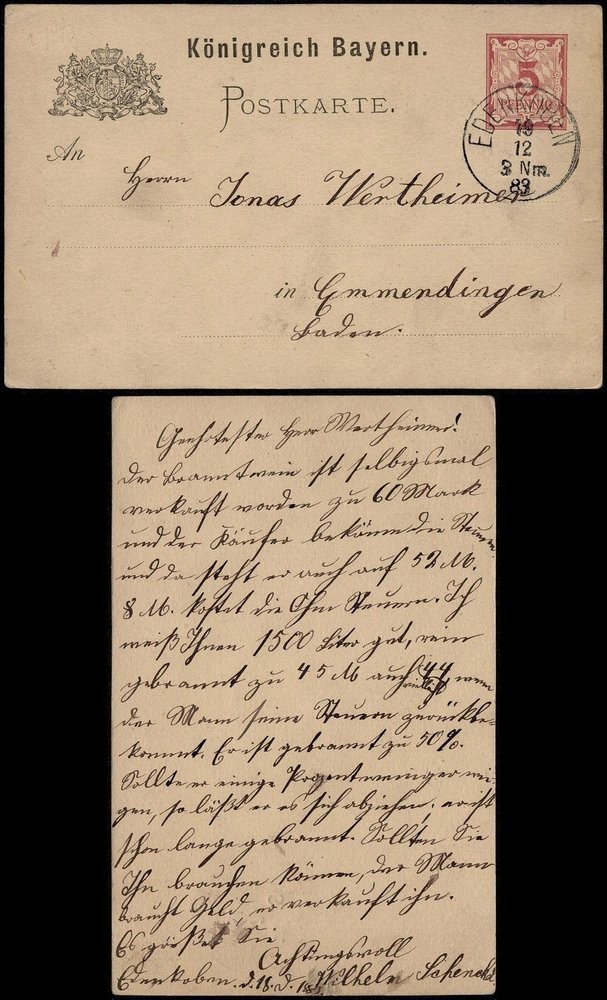 Königreich Bayern.
POSTKARTE.
5
PFENNIG
EDENKOBEN
12
3 Nm.
83
An
Herrn Jonas Wertheimer
in Emmendingen
Baden.
Geehrtester Herr Wertheimer!
Der Branntwein ist selbigsmal
verkauft worden zu 60 Mark
und der Käufer bekömmt die Steuern
und da steht er auch auf 52 M.
8 M. kostet die Ohm Steuern. Ich
weiß Ihnen 1500 Liter gut, rein
gebrannt zu 45 M auch 44 wenn
der Mann seine Steuern zurückbe-
kommt. Er ist gebrannt zu 50%.
Sollte er einige Prozent weniger wie-
gen, so läßt er es sich abziehen, er ist
schon lange gebrannt. Sollten Sie
Ihn brauchen können, der Mann
braucht Geld, er verkauft ihn.
Es grüßet Sie
Achtungsvoll
Edenkoben. d. 18. d. Wilhelm Schenck